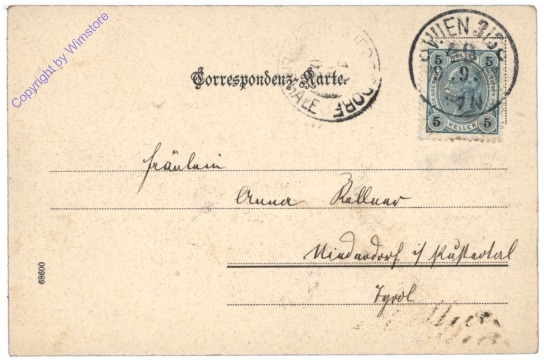 Copyright by Wimstore
Correspondenz-Karte.
WIEN
5 5
5 5
HELLER
Fräulein
Anna Kellner
Niederdorf i/ Pustertal
Tyrol
68600